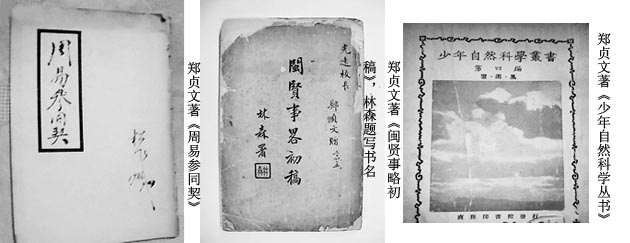 周易参同契
郑贞文著《周易参同契》
光達校书
閩賢事畧初稿
鄭貞文贈
林森署
郑贞文著《闽贤事略初
稿》，林森题写书名
少年自然科學叢書
第四編
雲·雨·風
商務印書館發行
郑贞文著《少年自然科学丛书》